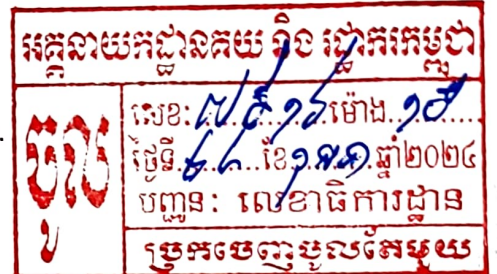 អគ្គនាយកដ្ឋានគយ និង រដ្ឋាករកម្ពុជា
ចូល
លេខ: ៧៩១៦ ម៉ោង
ថ្ងៃទី ខែ ឆ្នាំ២០២៤
បញ្ជូន: លេខាធិការដ្ឋាន
ច្រកចេញចូលតែមួយ